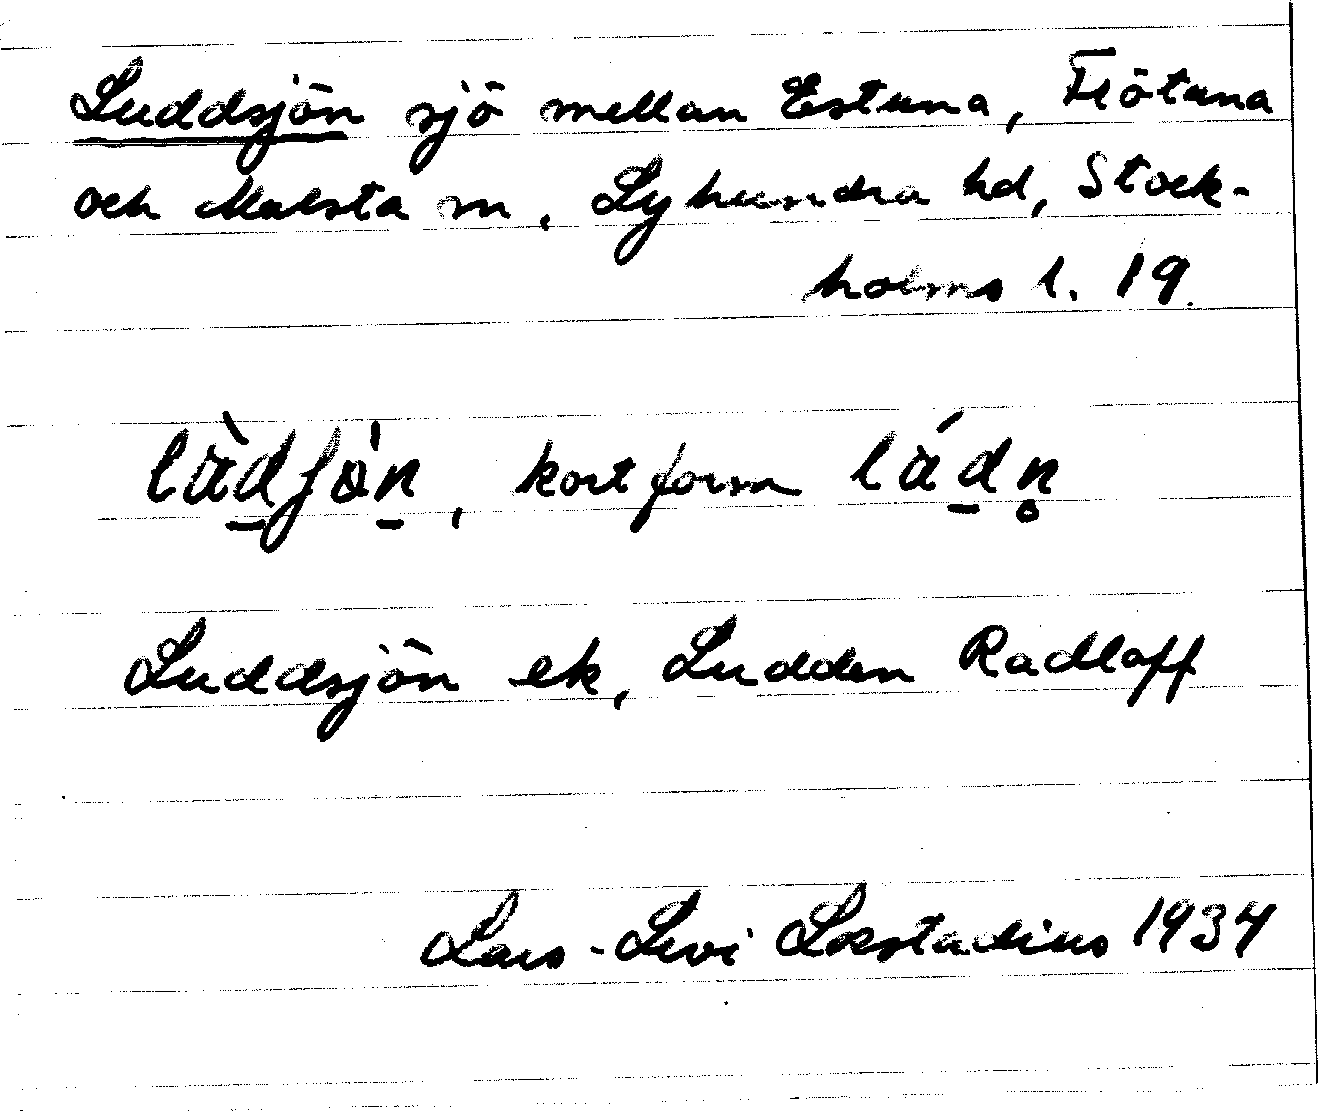 Luddsjön sjö mellan Estuna, Frötuna
och Malsta sn, Lyhundra hd, Stock-
holms l. 19.
kortform
Luddsjön ek, Ludden Radloff
Lars-Levi Læstadius 1934